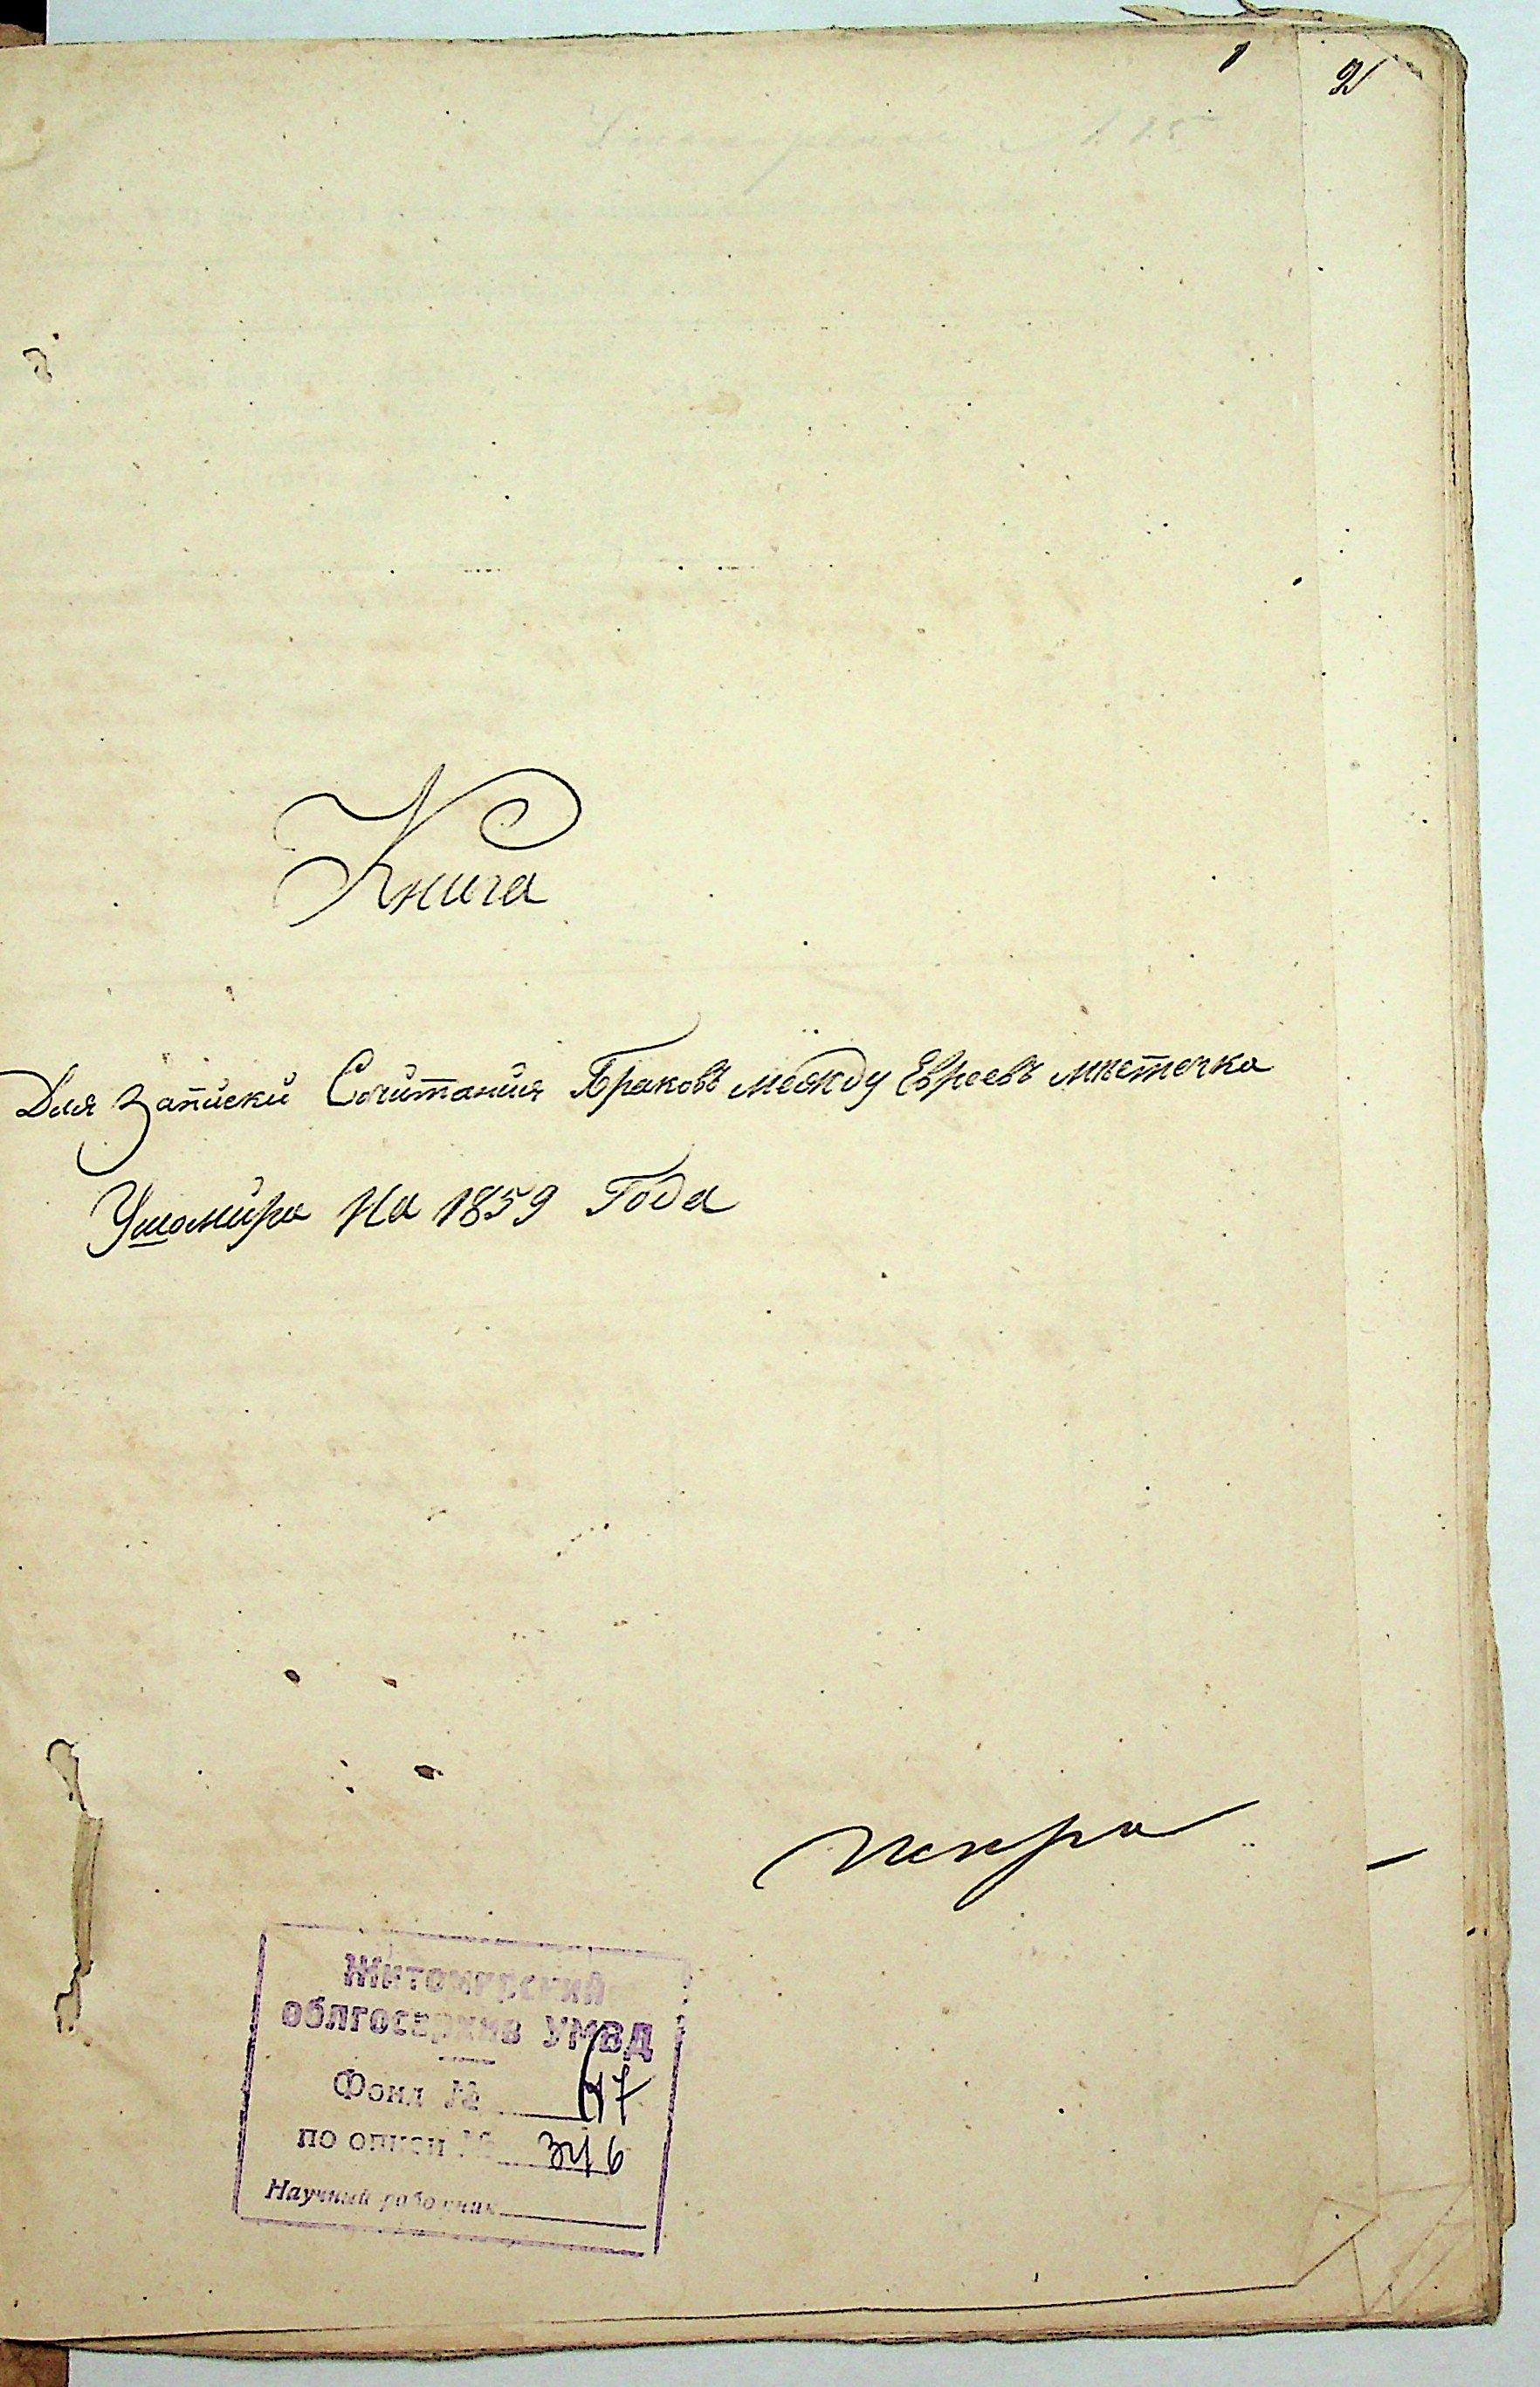 1 2
Книга
Для Записки Сочитания Браковъ между Евреевъ мѣстечка
Ушомира На 1859 Года
Житомирский
облгосархив УМВД
Фонд № 67
по описи № 346
Научный работник